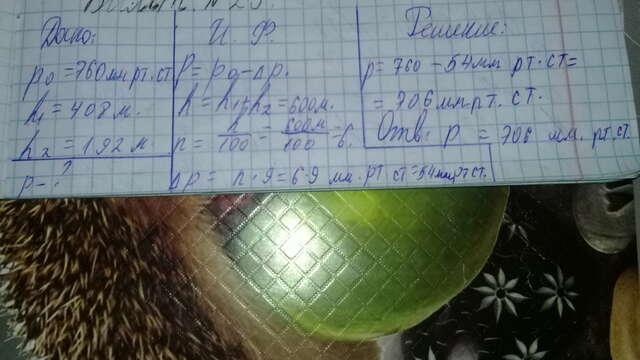 Дано:
p₀ = 760 мм рт. ст
h₁ = 408 м.
h₂ = 192 м.
p - ?
И. Ф.
P = p₀ - Δp.
h = h₁+h₂ = 600м.
n = h/100 = 600м/100 = 6.
Δp = n · 9 = 6·9 мм. рт ст = 54мм рт ст.
Решение:
p = 760 - 54 мм рт. ст =
= 706 мм рт. ст.
Отв: p = 706 мм. рт. ст.